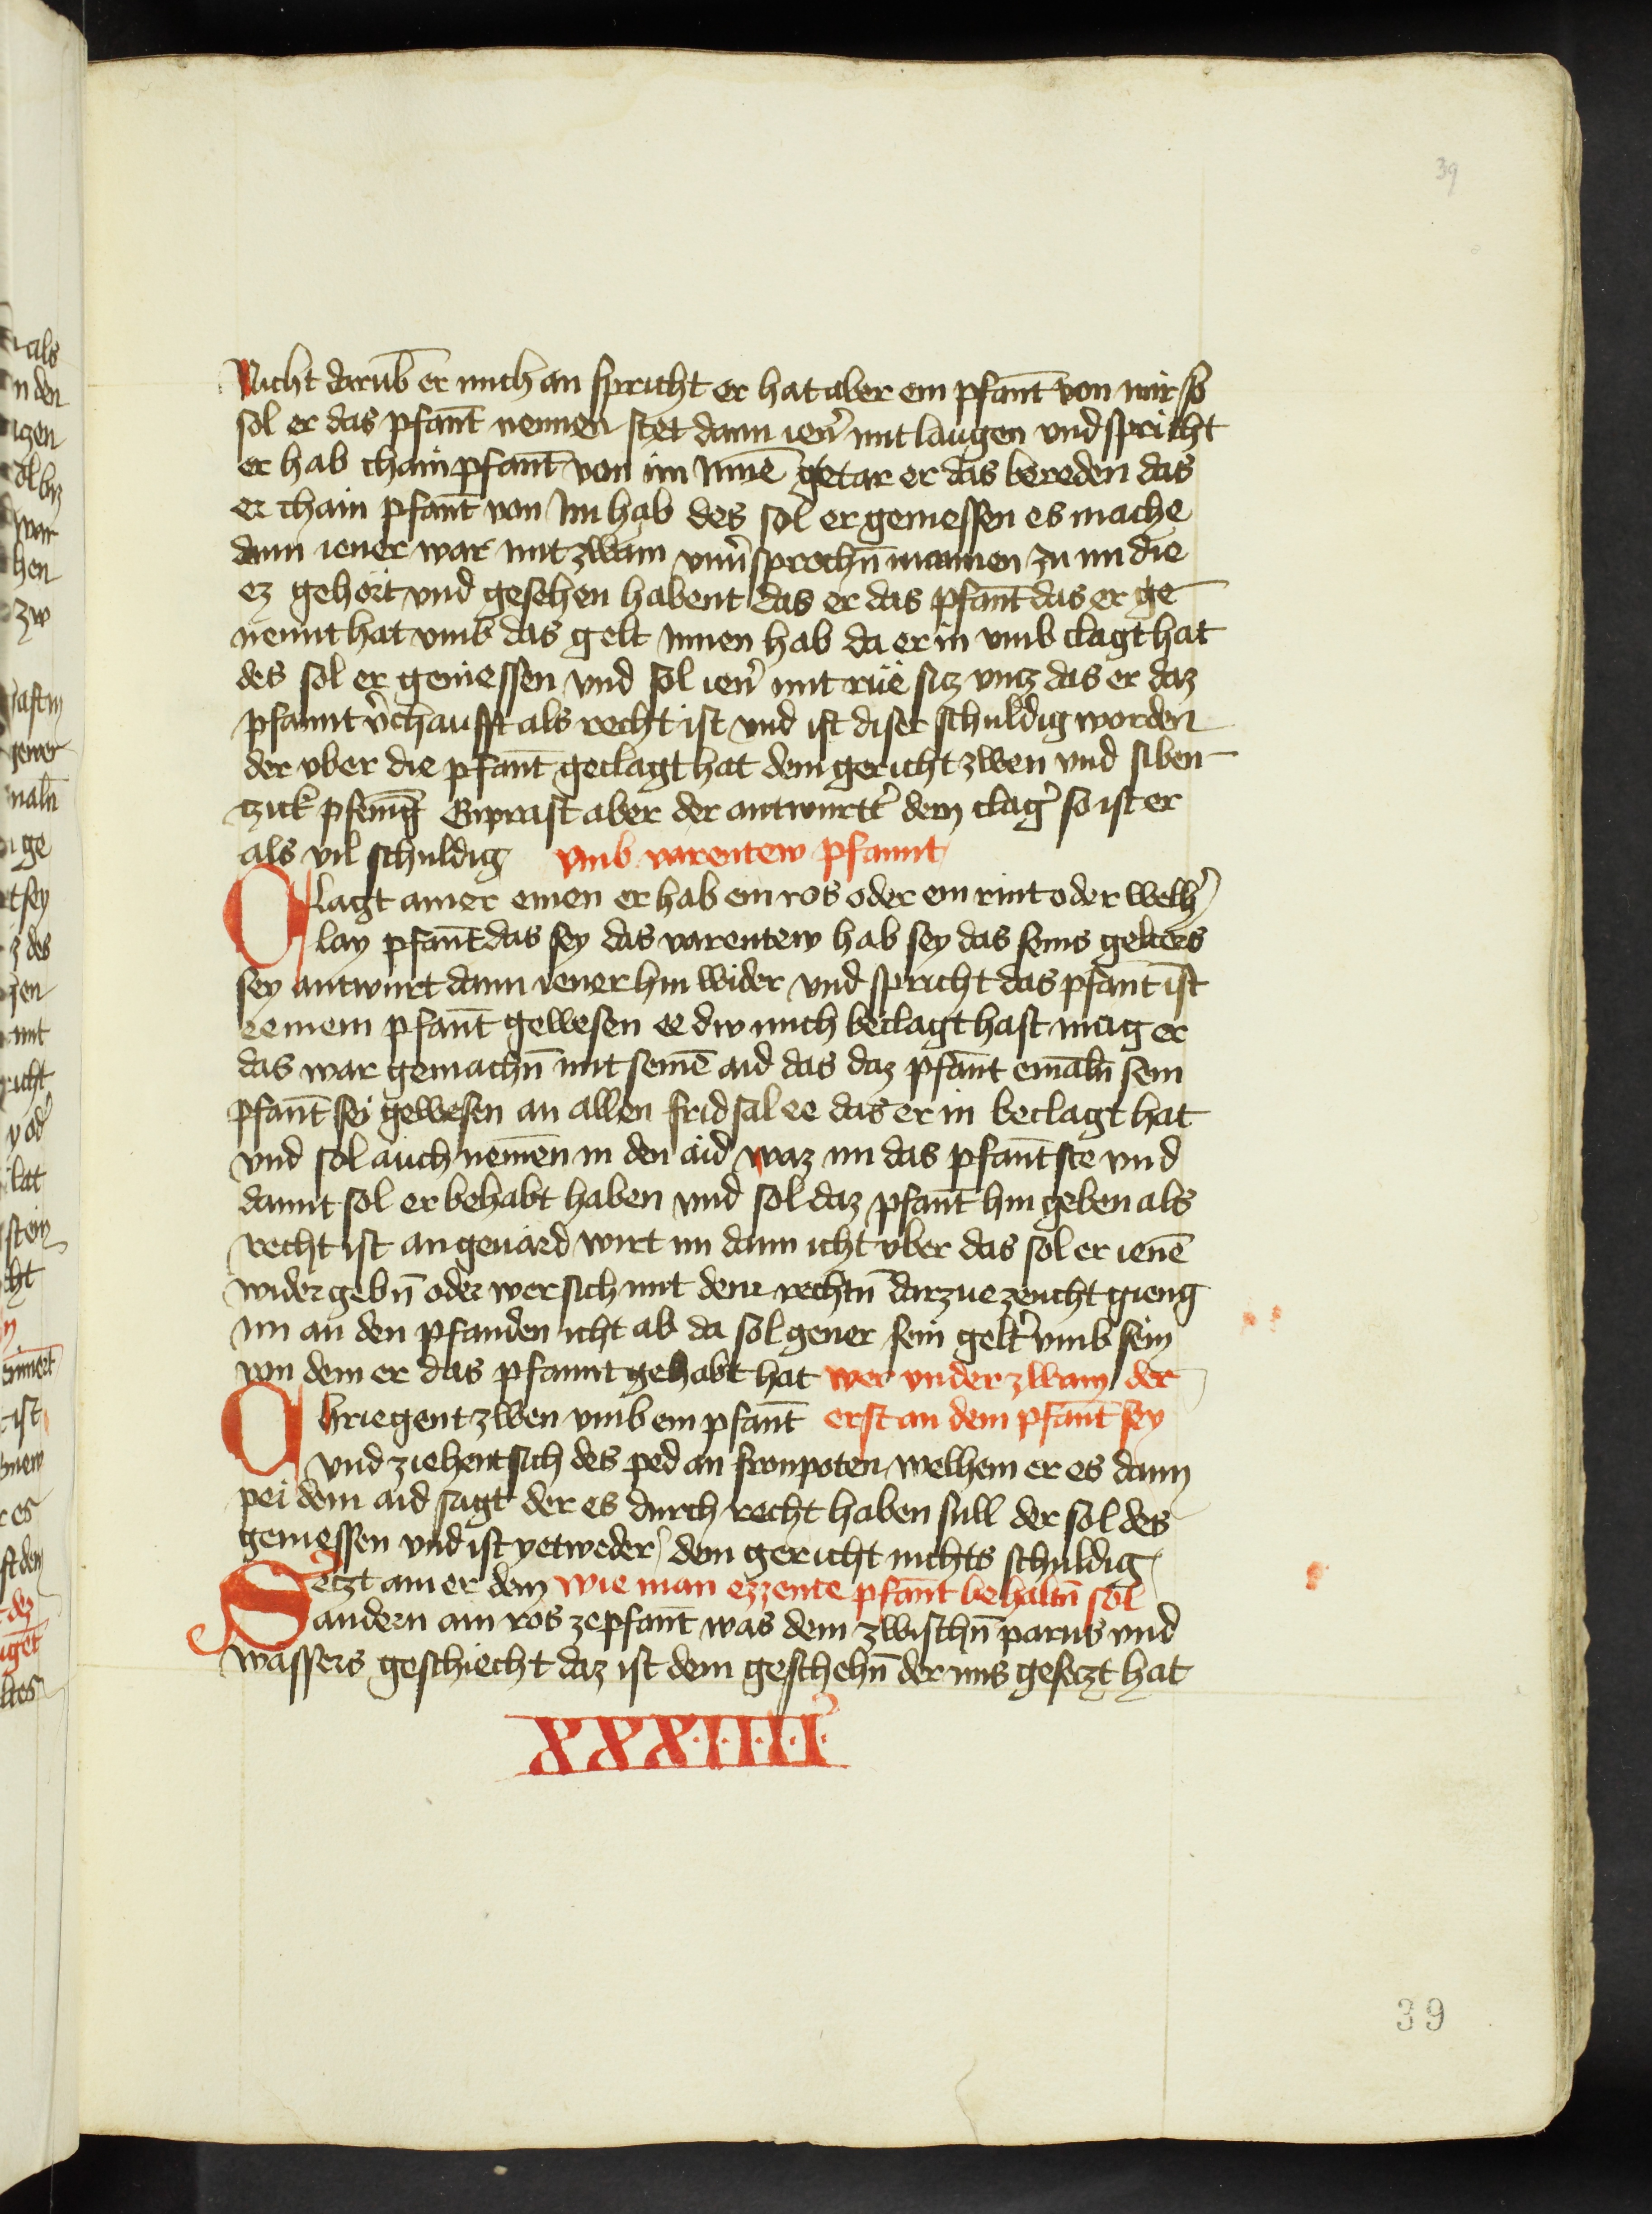 39
Nicht darub̄ er mich an spricht er hat aber ein pfant̄ von mir so
sol er das pfant̄ nennen stet dann ien̉ mit laugen vnd spricht
er hab chain pfant̄ von im Inne᷑ getar er das bereden das
er chain pfant̄ von Im hab des sol er geniessen es mache
dann iener war mit zwain vnu̓sprochn̄ mannen zu im die
ez gehört vnd gesehen habent das er das pfant̄ das er ge
nennt hat vmb das gelt Innen hab da er in vmb clagt hat
des sol er geniessen vnd sol ien̉ mit rüe siz vntz das er daz
pfannt v̉chaufft als recht ist vnd ist diser schuldig worden
der vber die pfant̄ geclagt hat dem gericht zwen vnd siben
tzick pfenīg Enprast aber der antwurtt̉ dem clag̉ so ist er
als vil schuldig vmb varentew pfannt
Clagt ainer einen er hab ein ros oder ein rint oder welh̉
lay pfant̄ das sey das varentew hab sey das seins gelters
sey antwurt dann iener hin wider vnd spricht das pfant̄ ist
ee mein pfant̄ gewesen ee dw mich beclagt hast mag er
das war gemachn̄ mit seinē aid das daz pfant̄ emāln̄ sein
pfant̄ sei gewesen an allen fridsal ee das er in beclagt hat
vnd sol auch nem̄en in den aid waz im das pfant̄ ste vnd
damit sol er behabt haben vnd sol daz pfant̄ hin geben als
recht ist an geuärd wirt im dann icht vber das sol er ienē
wider gebn̄ oder wer sich mit dem rechtn̄ darzue zeucht gieng
im an den pfanden icht ab da sol gener sein gelt̉ vmb sein
von dem er das pfannt gehabt hat wer vnder zwain der
Chriegent zwen vmb ein pfant̄ erst an dem pfant̄ sey
vnd ziehent sich des ped an fronpoten welhem er es dann
pei dem aid sagt der es durch recht haben sull der sol des
geniessen vnd ist yetweder̉ dem gericht nichts schuldig
Setzt ainer dem wie man ezzente pfant̄ behaltn̄ sol
andern ain ros ze pfant̄ was dem zwischn̄ parns vnd
wassers geschiecht daz ist dem geschehn̄ der ims gesetzt hat
XXX·I·I·I·I·
39